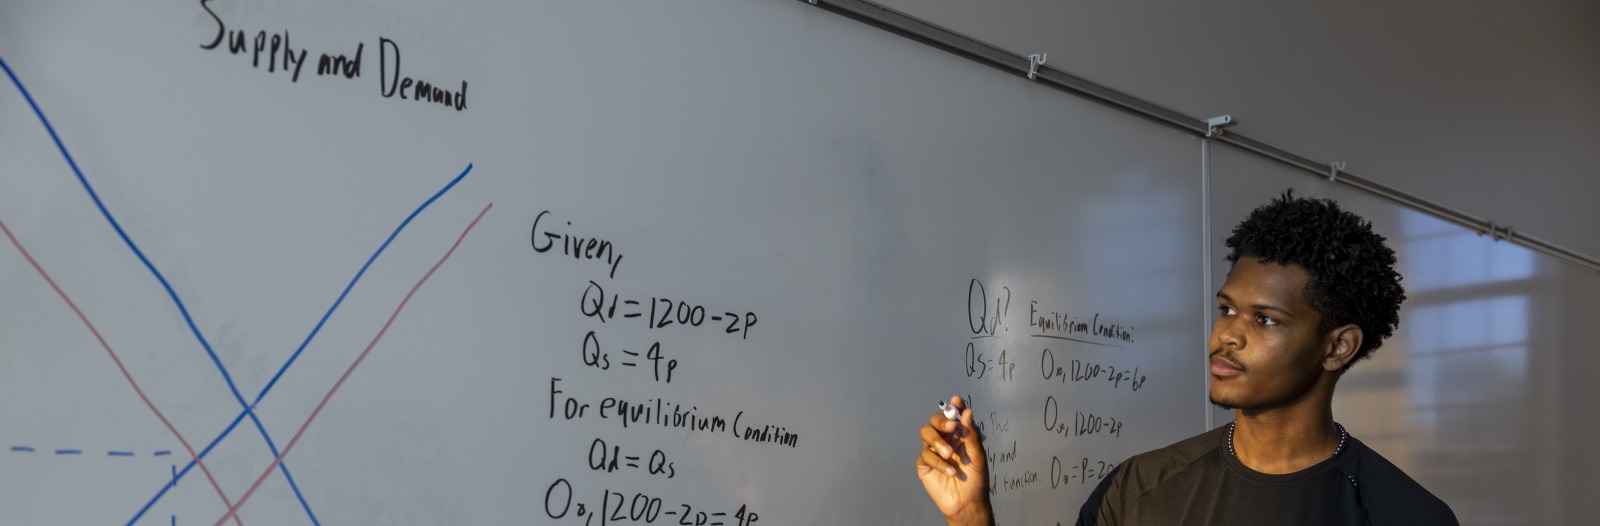 Supply and Demand
Given,
Qd = 1200 - 2P
Qs = 4p
For equilibrium Condition
Qd = Qs
Or, 1200 - 2p = 4p
Qd?
Equilibrium Condition:
Qs = 4p
Or, 1200 - 2p = 6p
Or, 1200 - 2p
and
Function.
Or = P = 20